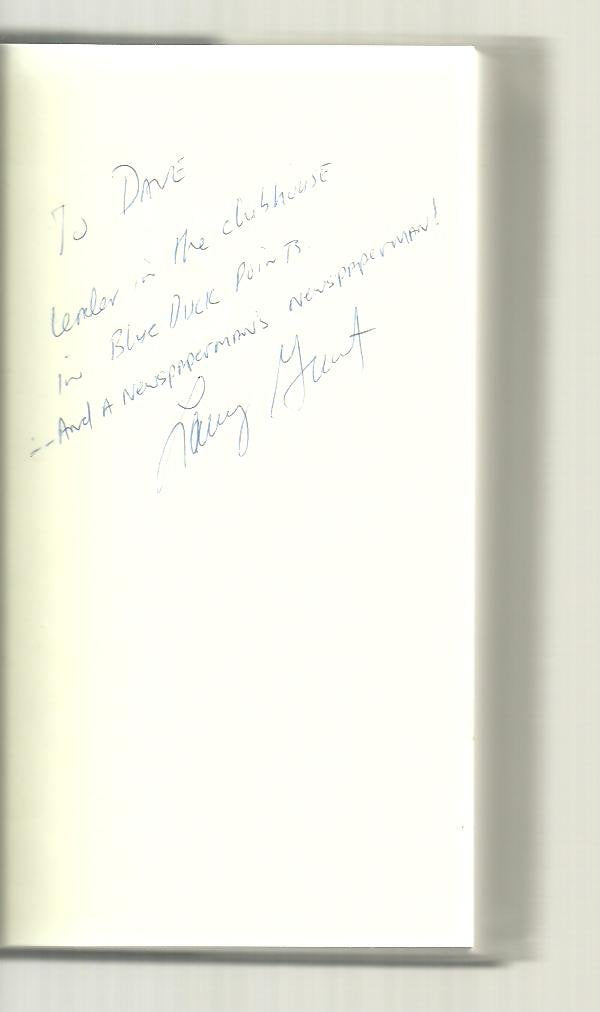 To DAVE
Leader in the clubhouse
in Blue Duck Points.
--And A Newspaperman's Newspaperman!
Larry